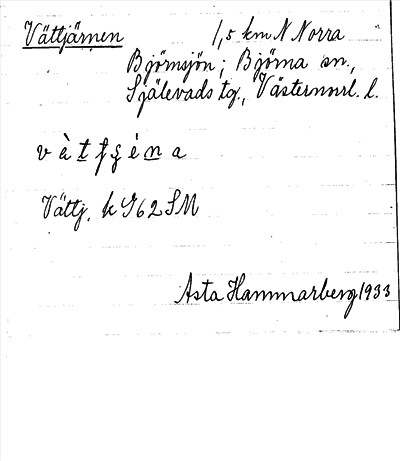 Vättjärnen 1,5 km N Norra
Björnsjön; Björna sn.,
Själevads tg., Västernorrl. l.
v ä t f g é n a
Vättj. k G62 SM
Asta Hammarberg 1933